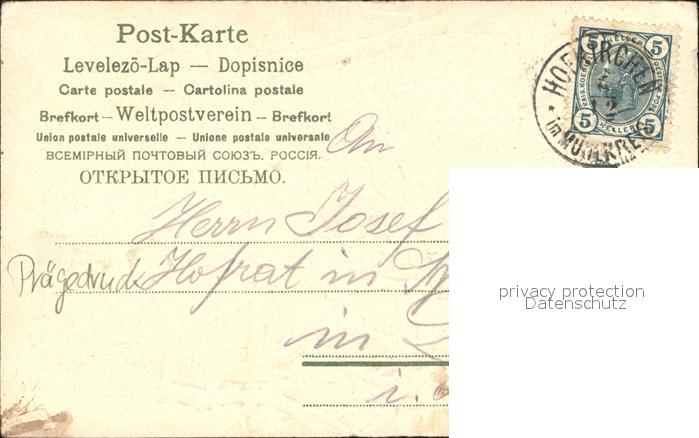 Post-Karte
Levelezö-Lap — Dopisnice
Carte postale — Cartolina postale
Brefkort — Weltpostverein — Brefkort
Union postale universelle — Unione postale universale
ВСЕМІРНЫЙ ПОЧТОВЫЙ СОЮЗЪ. РОССІЯ.
ОТКРЫТОЕ ПИСЬМО.
5 HELLER 5
HOFKIRCHEN
im MÜHLKREIS
5 HELLER 5
An
Herrn Josef
Prägedruck
Hofrat in
in
i.
privacy protection
Datenschutz